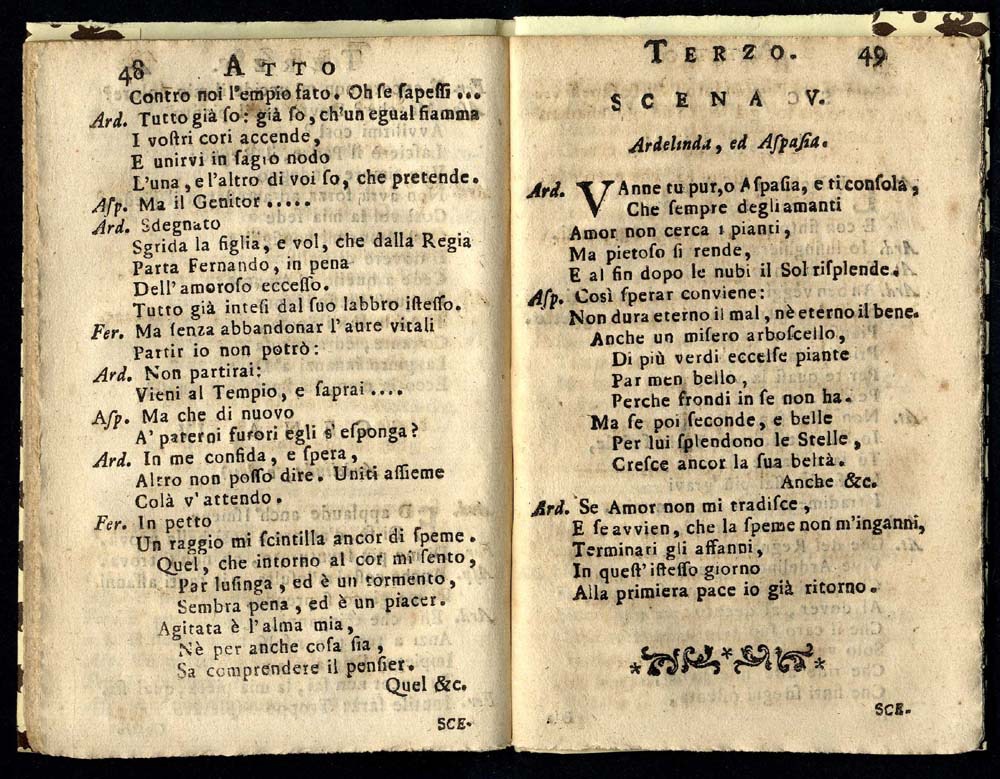 48 ATTO
Contro noi l'empio fato. Oh se sapessi ...
Ard. Tutto già so: già so, ch'un egual fiamma
I vostri cori accende,
E unirvi in sagro nodo
L'una, e l'altro di voi so, che pretende.
Asp. Ma il Genitor .....
Ard. Sdegnato
Sgrida la figlia, e vol, che dalla Regia
Parta Fernando, in pena
Dell'amoroso eccesso.
Tutto già intesi dal suo labbro istesso.
Fer. Ma senza abbandonar l'aure vitali
Partir io non potrò:
Ard. Non partirai:
Vieni al Tempio, e saprai ....
Asp. Ma che di nuovo
A' paterni furori egli s'esponga?
Ard. In me confida, e spera,
Altro non posso dire. Uniti assieme
Colà v'attendo.
Fer. In petto
Un raggio mi scintilla ancor di speme.
Quel, che intorno al cor mi sento,
Par lusinga, ed è un tormento,
Sembra pena, ed è un piacer.
Agitata è l'alma mia,
Nè per anche cosa sia,
Sa comprendere il pensier.
Quel &c.
SCE-
TERZO. 49
SCENA V.
Ardelinda, ed Aspasia.
Ard. VAnne tu pur, o Aspasia, e ti consola,
Che sempre degli amanti
Amor non cerca i pianti,
Ma pietoso si rende,
E al fin dopo le nubi il Sol risplende.
Asp. Così sperar conviene:
Non dura eterno il mal, nè eterno il bene.
Anche un misero arboscello,
Di più verdi eccelse piante
Par men bello,
Perche frondi in se non ha.
Ma se poi seconde, e belle
Per lui splendono le Stelle,
Cresce ancor la sua beltà.
Anche &c.
Ard. Se Amor non mi tradisce,
E se avvien, che la speme non m'inganni,
Terminati gli affanni,
In quest'istesso giorno
Alla primiera pace io già ritorno.
SCE-